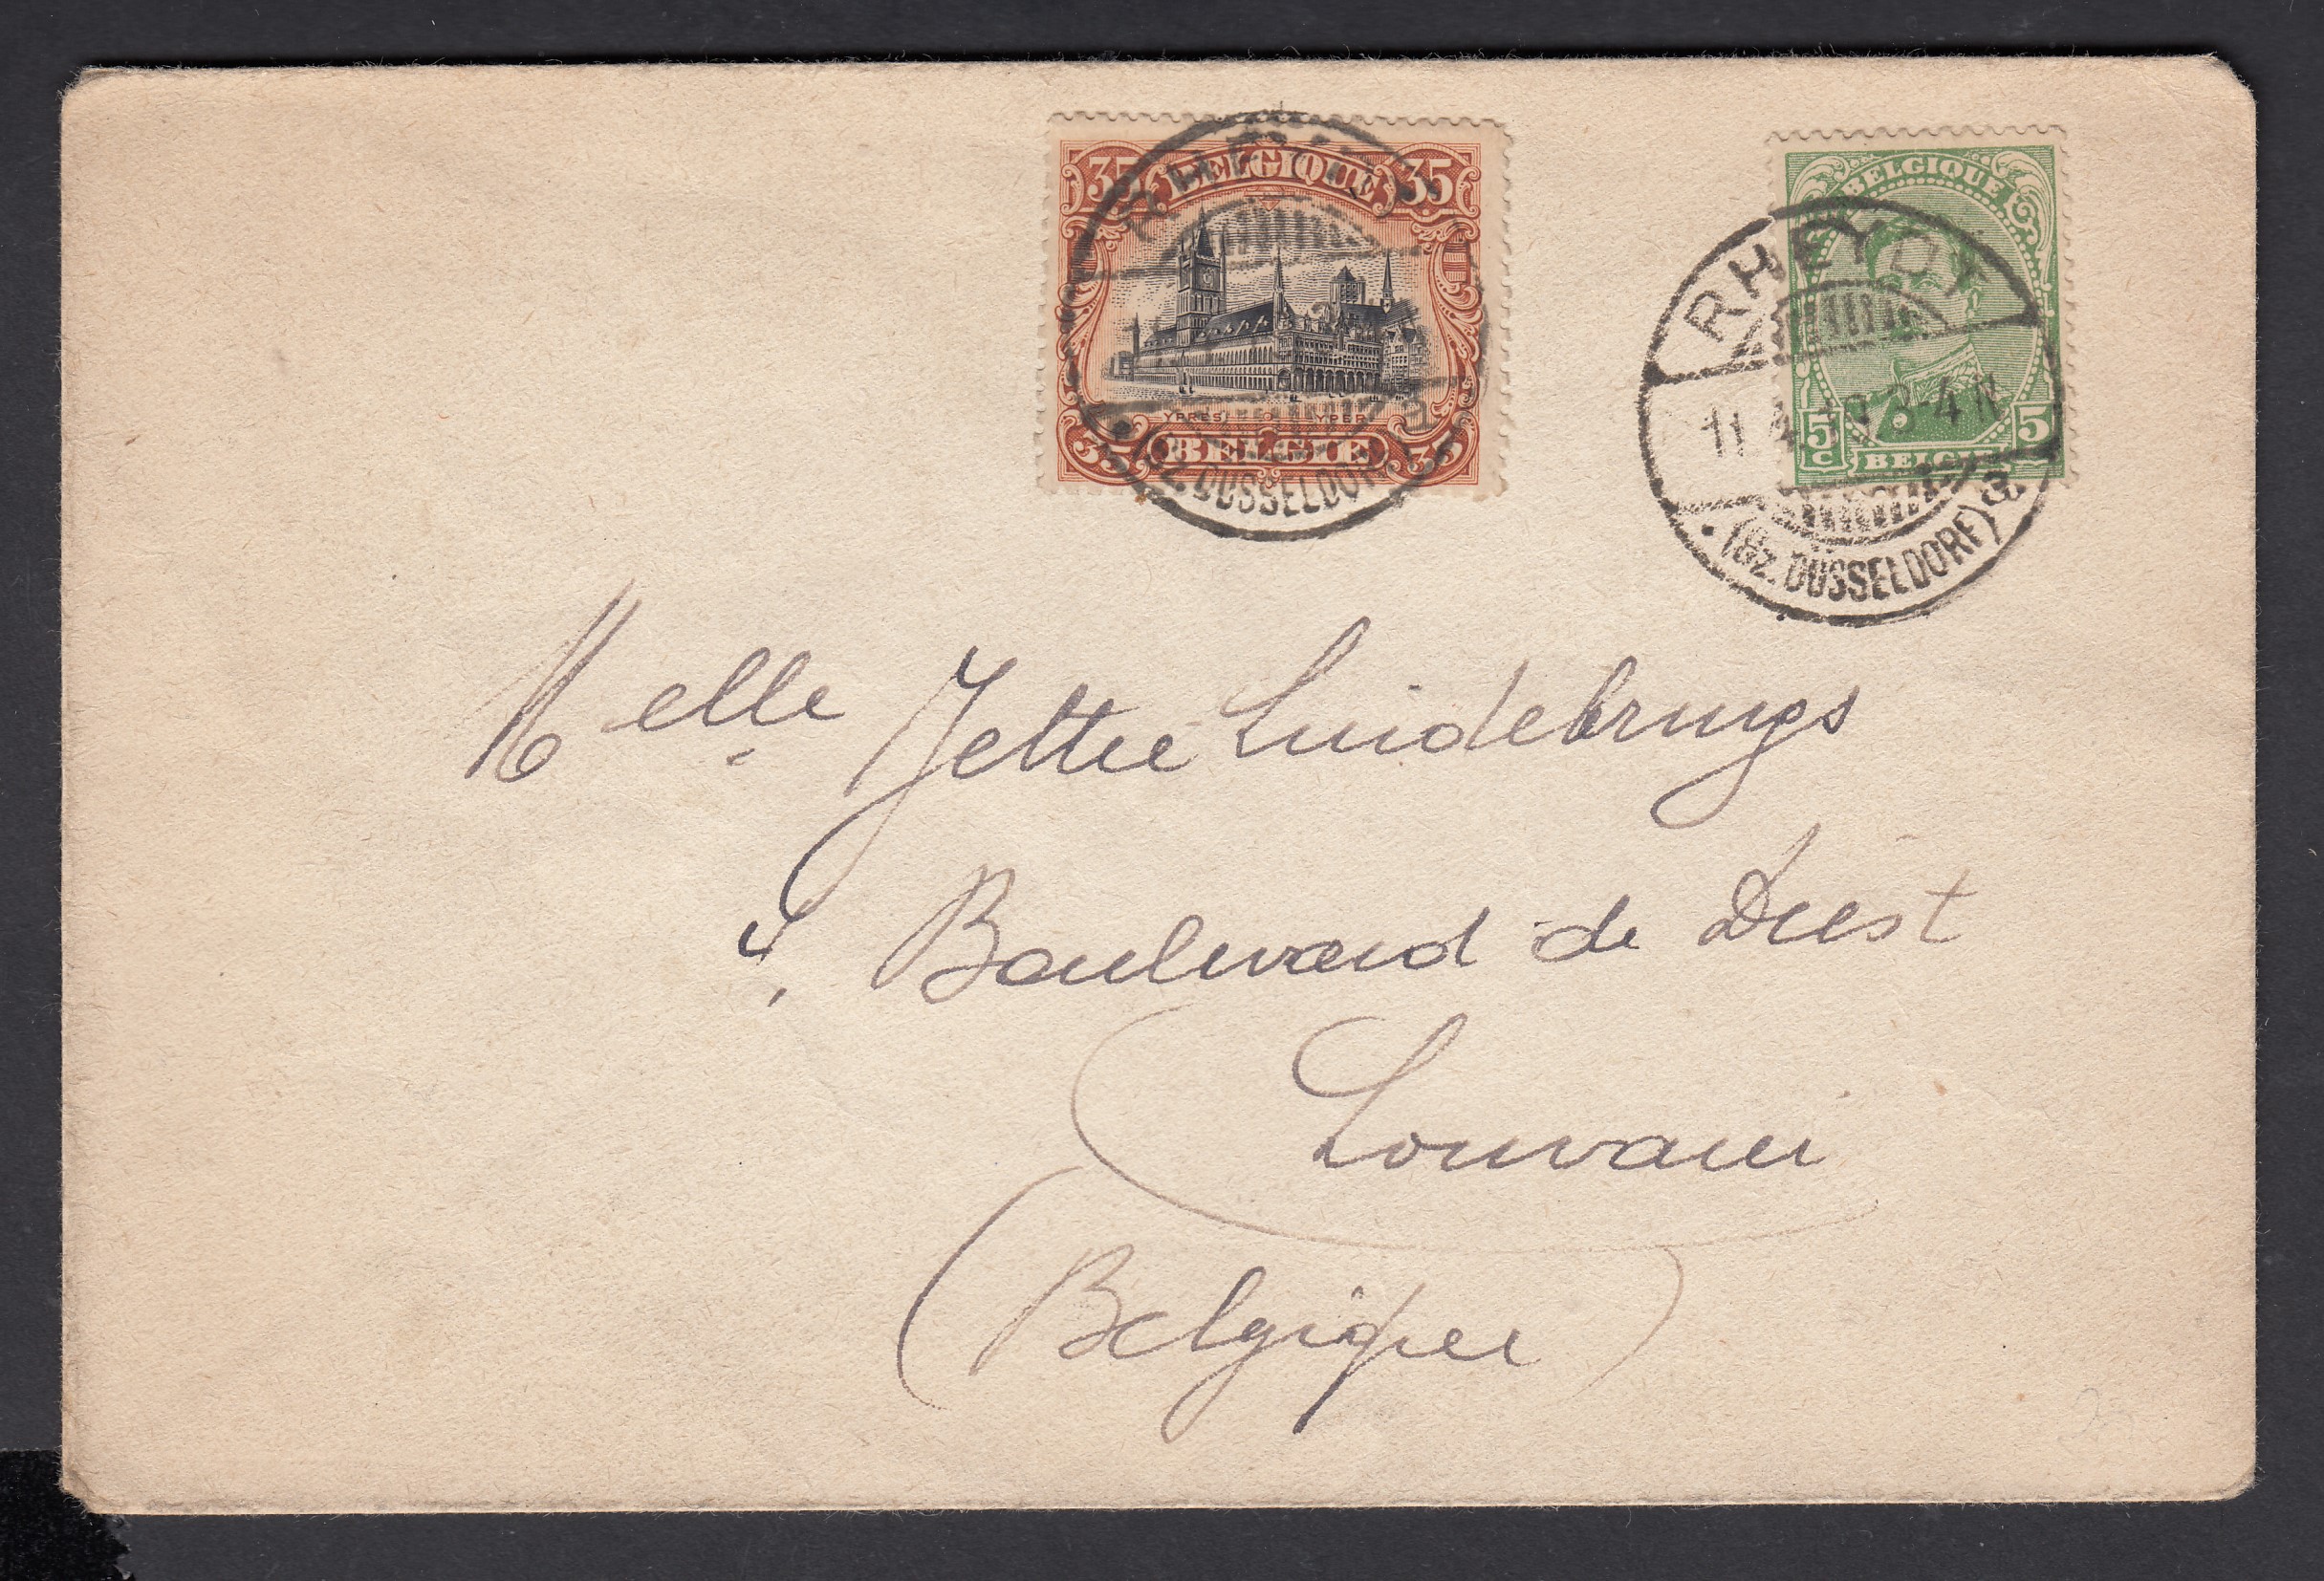 35 BELGIQUE 35
YPRES YPER
35 BELGIE 35
(Bz. DÜSSELDORF) a
BELGIQUE
RHEYDT
11.4.19 3-4 N
5 c BELGIE 5
(Bz. DÜSSELDORF) a
Melle Jettie Luidebruys
Boulevard de Diest
Louvain
(Belgique)